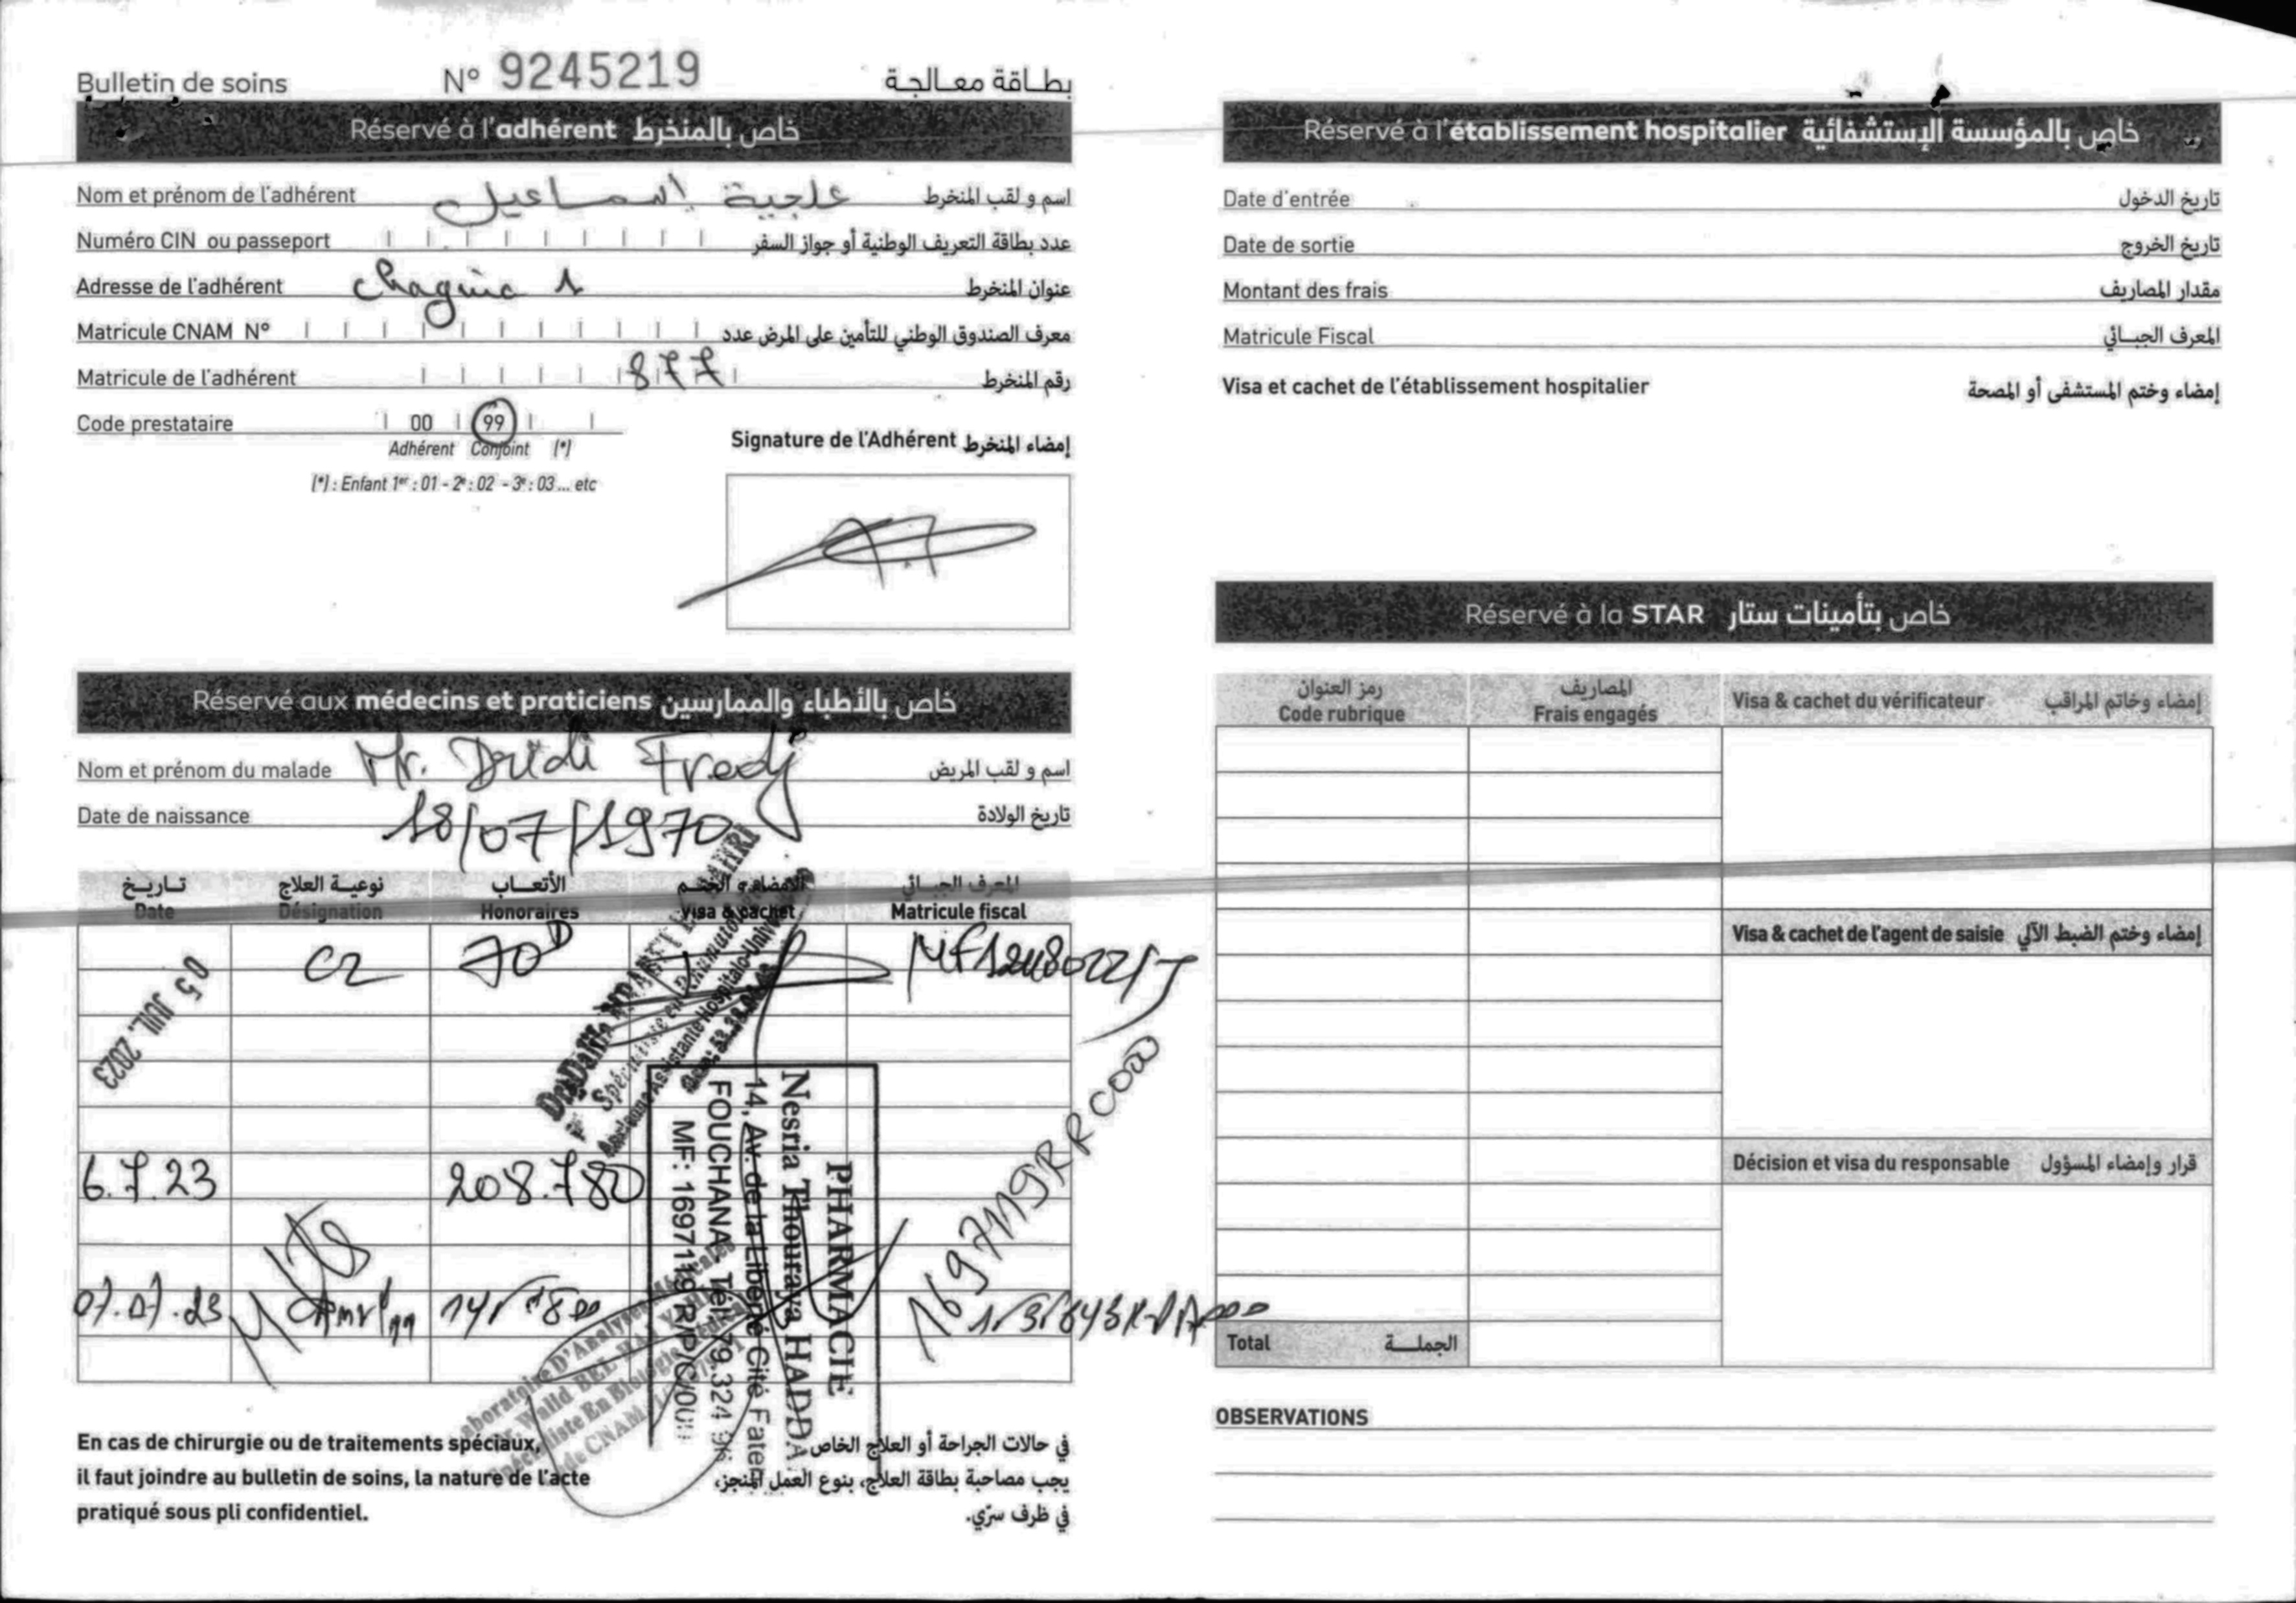 Bulletin de soins N° 9245219 بطاقة معالجة
Réservé à l'adhérent خاص بالمنخرط
Nom et prénom de l'adhérent علجية إسماعيل اسم و لقب المنخرط
Numéro CIN ou passeport عدد بطاقة التعريف الوطنية أو جواز السفر
Adresse de l'adhérent 1 عنوان المنخرط
Matricule CNAM N° معرف الصندوق الوطني للتأمين على المرض عدد
Matricule de l'adhérent 877 رقم المنخرط
Code prestataire 00 99
Adhérent Conjoint (*)
(*) : Enfant 1er : 01 - 2e : 02 - 3e : 03 ... etc
Signature de l'Adhérent إمضاء المنخرط
Réservé aux médecins et praticiens خاص بالأطباء والممارسين
Nom et prénom du malade Mr. Dridi Fredj اسم و لقب المريض
Date de naissance 18/07/1970 تاريخ الولادة
تاريخ نوعية العلاج الأتعاب الإمضاء و الختم المعرف الجبائي
Date Désignation Honoraires Visa & cachet Matricule fiscal
05 JUIL. 2023 C2 70D
Ancienne Assistante Hospitalo-Univ
6.7.23 208.780 1697119RPC000
PHARMACIE
Nesria Thouraya HADDA
14, Av. de la Liberté Cité Faten
FOUCHANA Tél: 79.324
MF: 1697119 R/P/C/00
07.07.23
Laboratoire D'Analyses Médicales
En cas de chirurgie ou de traitements spéciaux,
il faut joindre au bulletin de soins, la nature de l'acte
pratiqué sous pli confidentiel.
في حالات الجراحة أو العلاج الخاص
يجب مصاحبة بطاقة العلاج، بنوع العمل المنجز،
في ظرف سرّي.
Réservé à l'établissement hospitalier خاص بالمؤسسة الإستشفائية
Date d'entrée تاريخ الدخول
Date de sortie تاريخ الخروج
Montant des frais مقدار المصاريف
Matricule Fiscal المعرف الجبائي
Visa et cachet de l'établissement hospitalier إمضاء وختم المستشفى أو المصحة
Réservé à la STAR خاص بتأمينات ستار
رمز العنوان المصاريف
Code rubrique Frais engagés Visa & cachet du vérificateur إمضاء وخاتم المراقب
Visa & cachet de l'agent de saisie إمضاء وختم الضبط الآلي
Décision et visa du responsable قرار وإمضاء المسؤول
Total الجملة
OBSERVATIONS